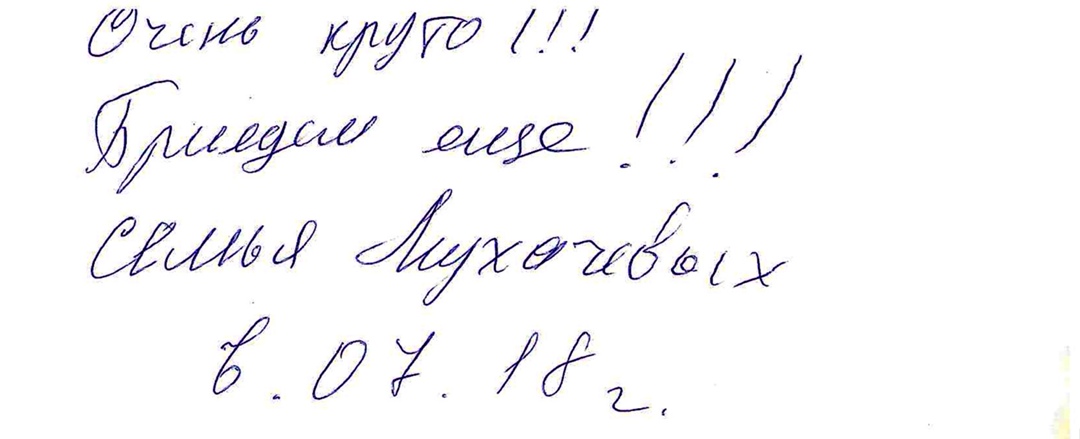 Очень круто!!!
Приедем еще!!!
Семья Мухачевых
8.07.18г.